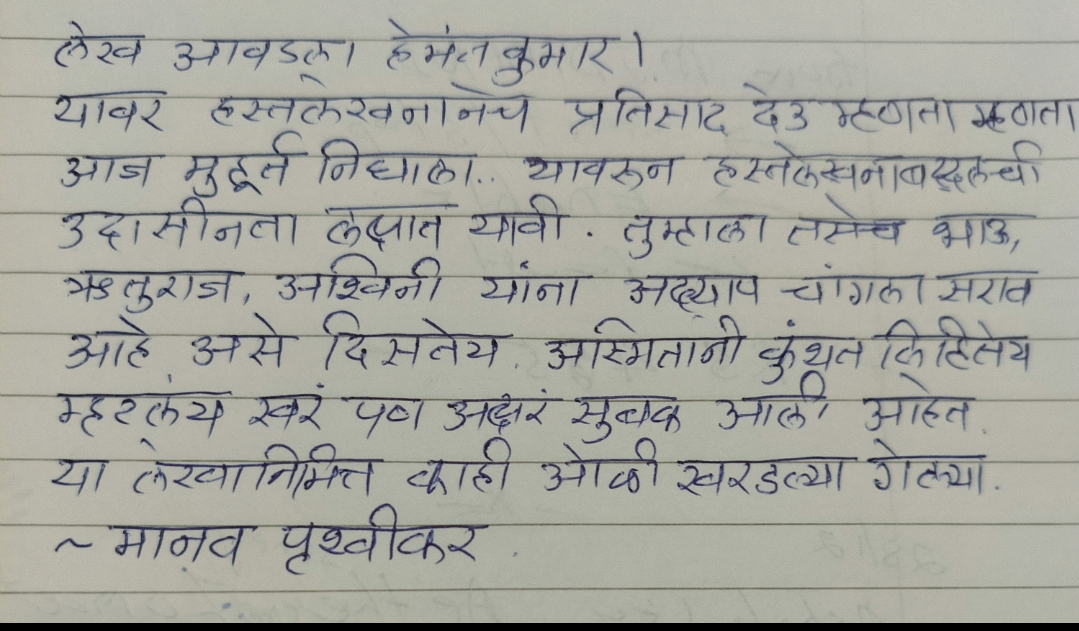 लेख आवडला हेमंतकुमार।
यावर हस्तलेखनानेच प्रतिसाद देउ म्हणता म्हणता
आज मुहूर्त निघाला.. यावरुन हस्तलेखनाबद्दलची
उदासीनता लक्षात यावी. तुम्हाला तसेच भाऊ,
ऋतुराज, अश्विनी यांना अद्याप चांगला सराव
आहे असे दिसतेय. अस्मितानी कुंथत लिहितेय
म्हटलंय खरं पण अक्षरं सुबक आली आहेत.
या लेखानिमित्त काही ओळी खरडल्या गेल्या.
~ मानव पृथ्वीकर.